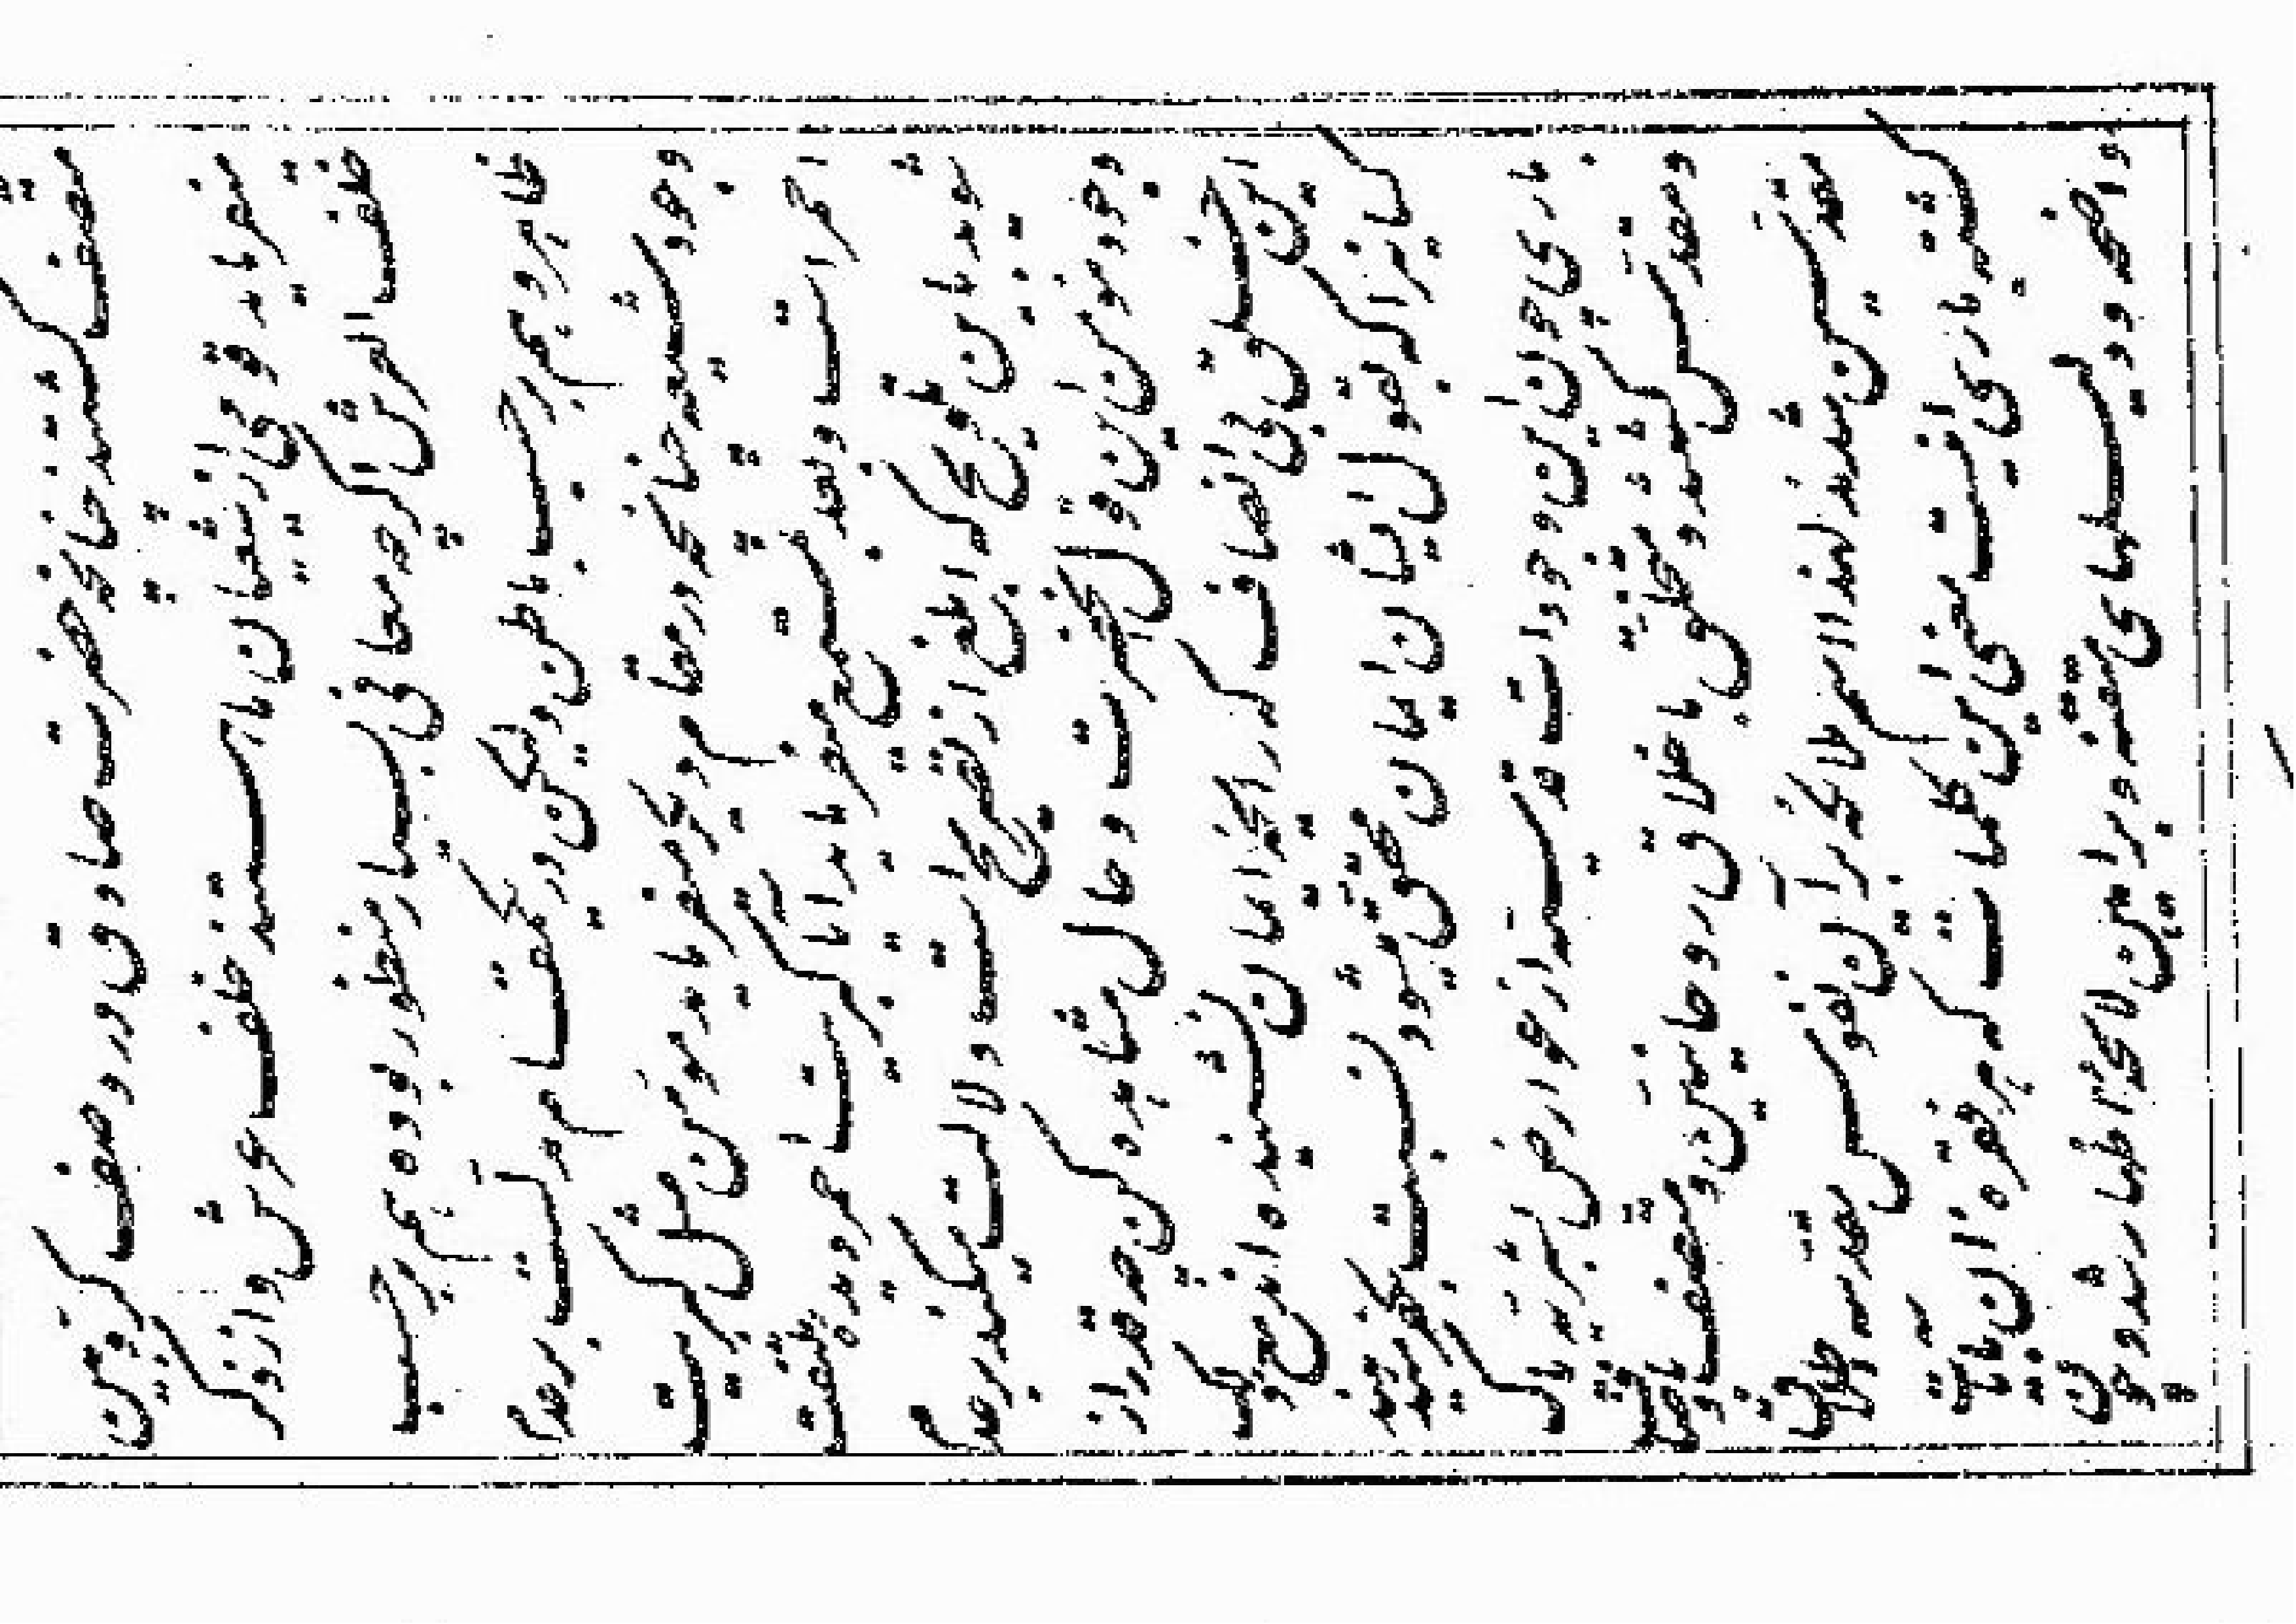 متصف گشتند چنانچه حضرت صادق در وصف کروبین
میفرماید قومی از شیعیان ما هستند خلف عرش و از ذکر
خلف العرش اگرچه معانی بسیار منظور بوده هم بر حسب
ظاهر و هم بر حسب باطن ولیکن در یکمقام مدلست بر عدم
وجود شیعه چنانچه در مقام دیگر میفرماید مؤمن مثل کبریت
احمر است و بعد بمستمع میفرماید آیا کبریت احمر دیده ملتفت
شوید باین تلویح که ابلغ از تصریح است دلالت میکند بر عدم
وجود مؤمن این قول آنحضرت و حال مشاهده کن چقدر از
این خلق بی انصاف که رایحه ایمان نشنیده اند معذلک
کسانیرا که بقول ایشان ایمان محقق میشود نسبت بکفر میدهند
باری چون این وجودات قدسیه از عوارض بشریه پاک
و مقدس گشتند و متخلق باخلاق روحانیین و متصف باوصاف
مقدسین شدند لهذا اسم ملائکه بر آن نفوس مقدسه اطلاق
گشته باری اینست معنی این کلمات که هر فقره آن بآیات
واضحه و دلیلهای متقنه و براهین لائحه اظهار شد و چون